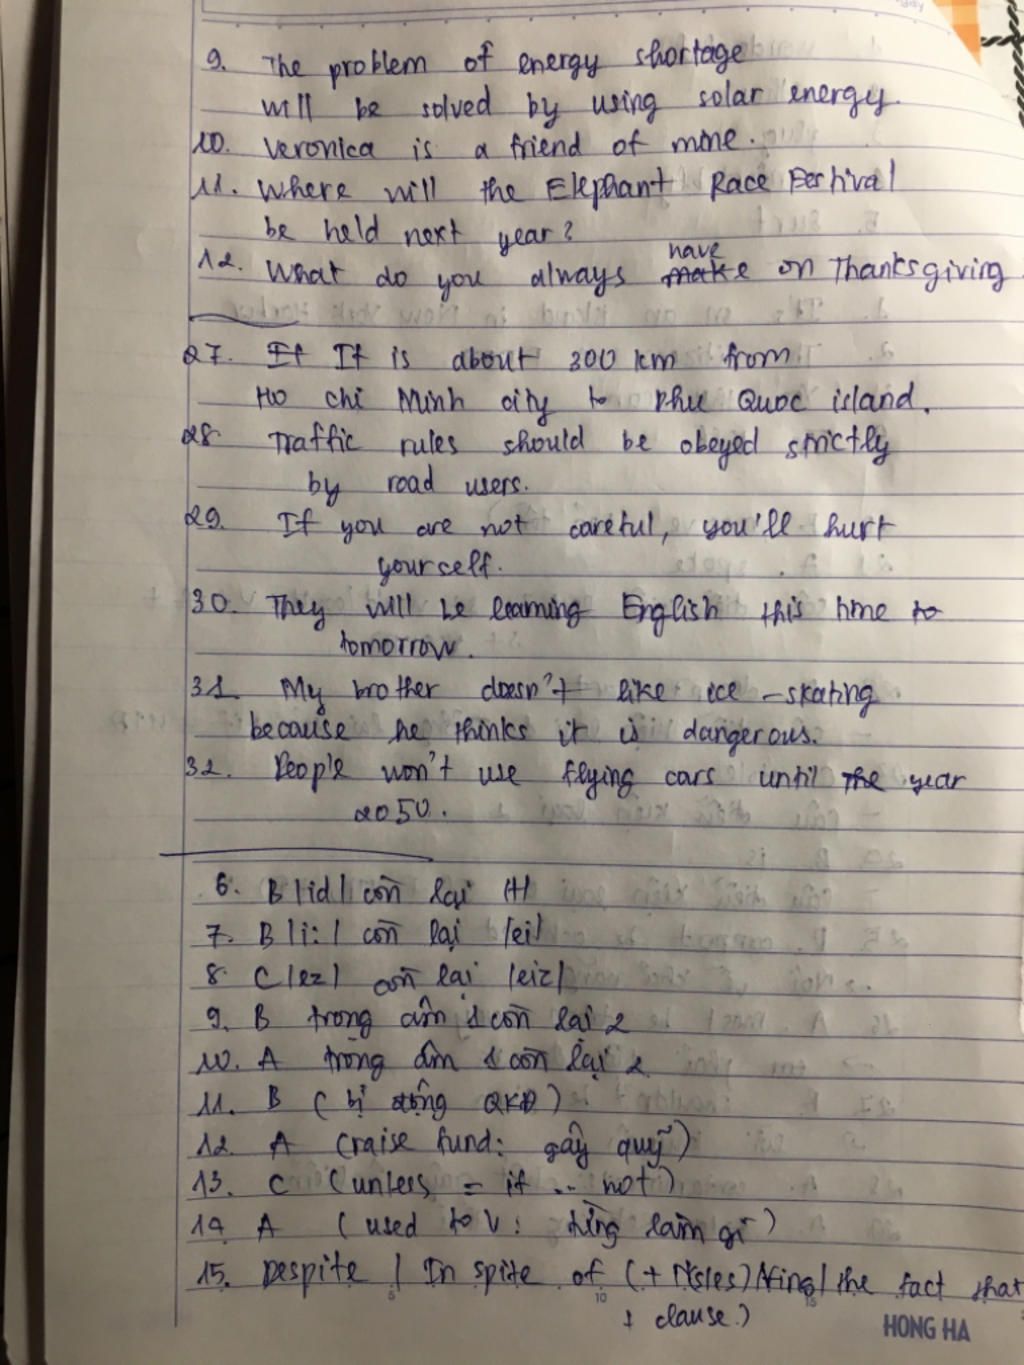 9. The problem of energy shortage
will be solved by using solar energy.
10. Veronica is a friend of mine.
11. Where will the Elephant Race Festival
be held next year?
have
12. What do you always make on Thanksgiving
27. It It is about 300 km from
Ho chi Minh city to Phu Quoc island.
28. Traffic rules should be obeyed strictly
by road users.
29. If you are not careful, you'll hurt
yourself.
30. They will be learning English this time to
tomorrow.
31. My brother doesn't like ice-skating
because he thinks it is dangerous.
32. People won't use flying cars until the year
2050.
6. B /id/ còn lại /t/
7. B /i:/ còn lại /ei/
8. C /ez/ còn lại /eiz/
9. B trọng âm 1 còn lại 2
10. A trọng âm 1 còn lại 2
11. B (bị động QKĐ)
12. A (raise fund: gây quỹ)
13. C (unless = if ... not)
14 A (used to V: từng làm gì)
15. Despite / In spite of (+ N(s/es)/Ving/the fact that
+ clause.)
HONG HA